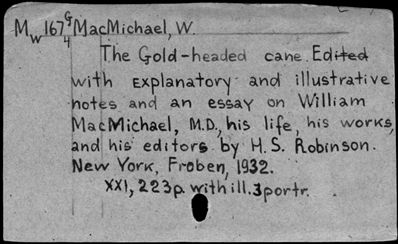 Mw 167 G4 MacMichael, W.
The Gold-headed cane. Edited
with explanatory and illustrative
notes and an essay on William
MacMichael, M.D., his life, his works,
and his editors by H. S. Robinson.
New York, Froben, 1932.
XXI, 223p. with ill. 3 portr.